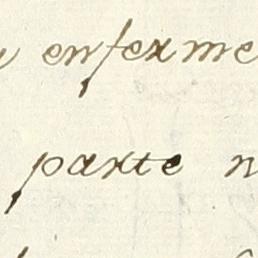 enferme
parte n